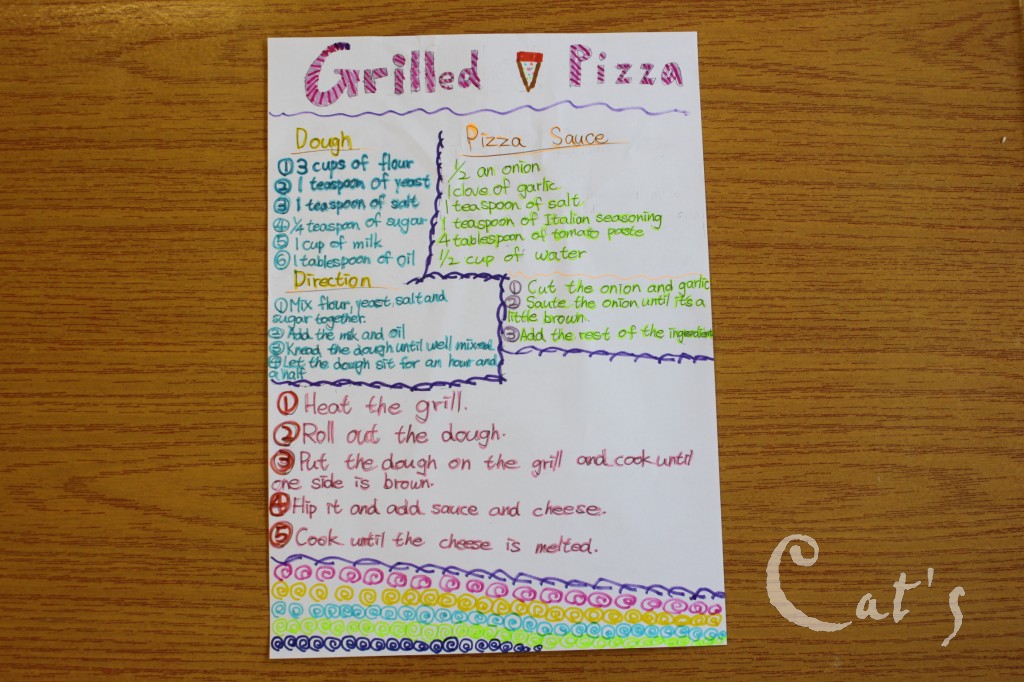 Grilled Pizza
Dough
① 3 cups of flour
② 1 teaspoon of yeast
③ 1 teaspoon of salt
④ ¼ teaspoon of sugar
⑤ 1 cup of milk
⑥ 1 tablespoon of oil
Direction
① Mix flour, yeast, salt and
sugar together.
② Add the milk and oil
③ Knead the dough until well mixed.
④ Let the dough sit for an hour and
a half
Pizza Sauce
½ an onion
1 clove of garlic
1 teaspoon of salt
1 teaspoon of Italian seasoning
4 tablespoon of tomato paste
½ cup of water
① Cut the onion and garlic
② Saute the onion until it's a
little brown.
③ Add the rest of the ingredient
① Heat the grill.
② Roll out the dough.
③ Put the dough on the grill and cook until
one side is brown.
④ Flip it and add sauce and cheese.
⑤ Cook until the cheese is melted.
Cat's